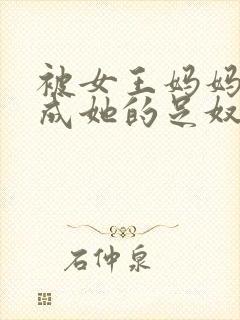 被女王妈妈
成她的足奴
石仲泉